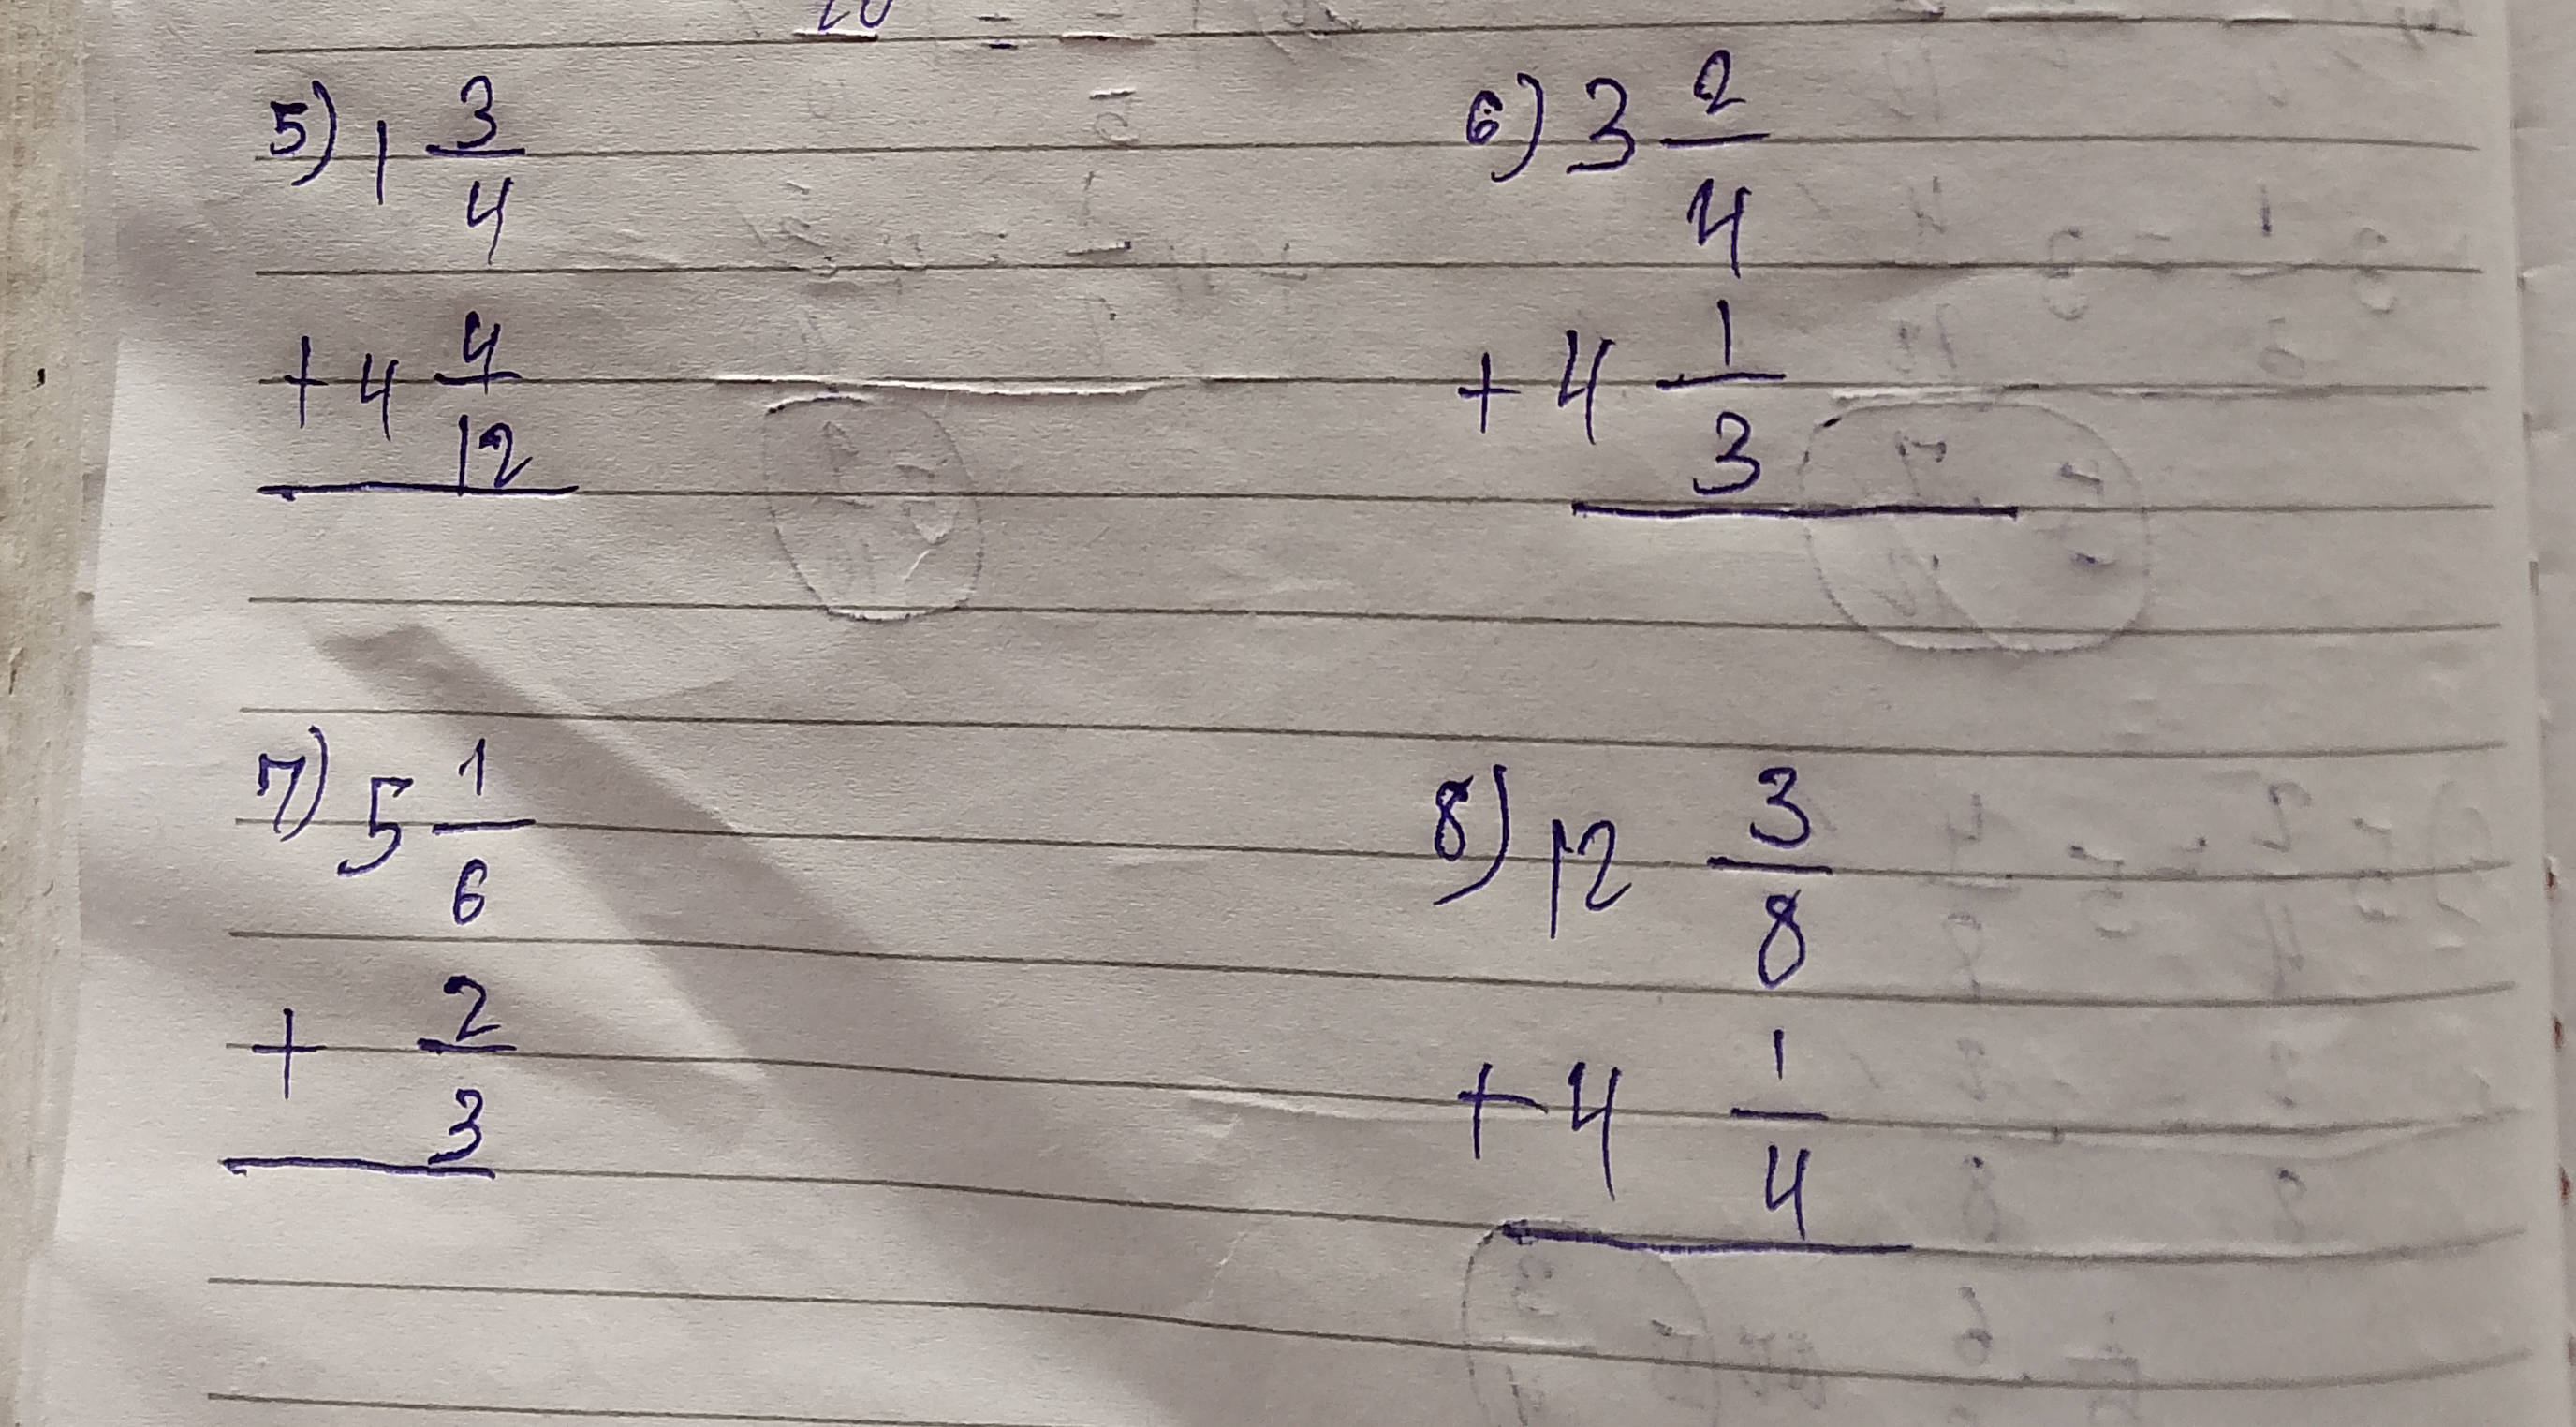 5) 1 3/4
+ 4 4/12
6) 3 2/4
+ 4 1/3
7) 5 1/6
+ 2/3
8) 12 3/8
+ 4 1/4